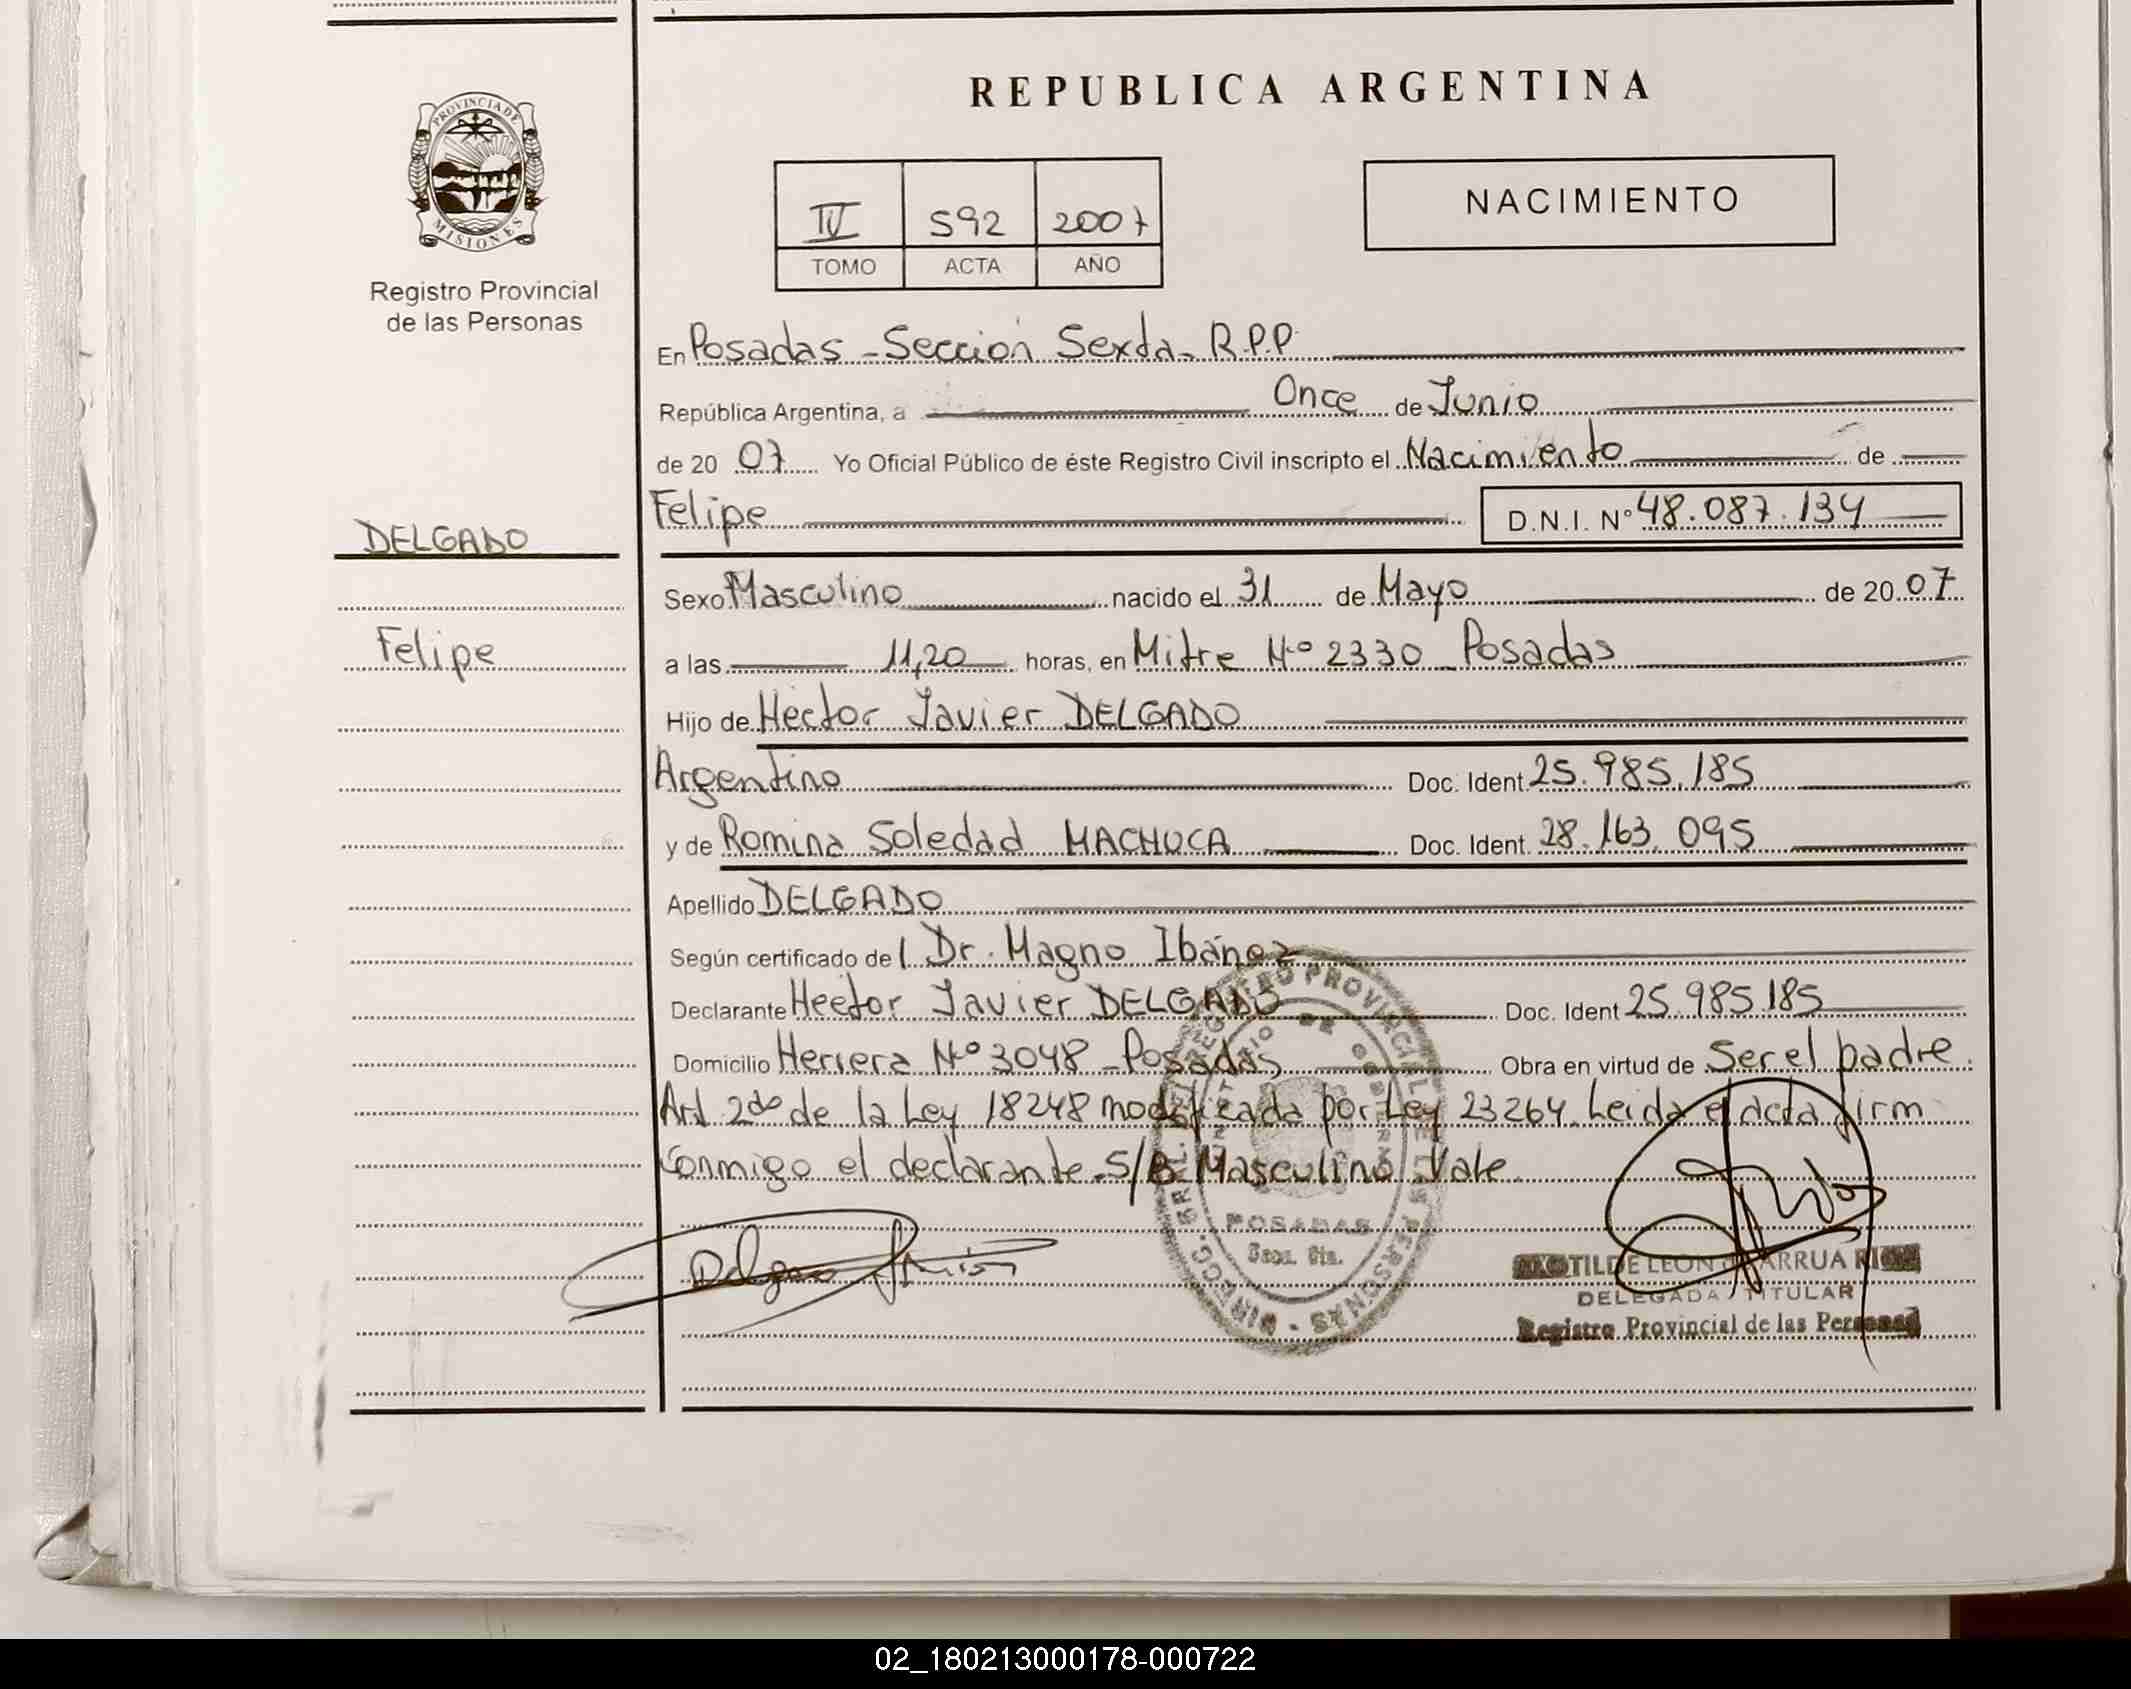 REPUBLICA ARGENTINA
PROVINCIA DE
MISIONES
Registro Provincial
de las Personas
IV 592 2007
TOMO ACTA AÑO
NACIMIENTO
En Posadas - Sección Sexta - R.P.P.
República Argentina, a Once de Junio
de 20 07 Yo Oficial Público de éste Registro Civil inscripto el Nacimiento de
Felipe D.N.I. Nº 48.087.134
DELGADO
Sexo Masculino nacido el 31 de Mayo de 20 07
Felipe
a las 11,20 horas, en Mitre Nº 2330 Posadas
Hijo de Hector Javier DELGADO
Argentino Doc. Ident. 25.985.185
y de Romina Soledad MACHUCA Doc. Ident. 28.163.095
Apellido DELGADO
Según certificado de l Dr. Magno Ibánez
Declarante Hector Javier DELGADO Doc. Ident 25.985.185
Domicilio Herrera Nº 3048 - Posadas Obra en virtud de Ser el padre.
Art 2do de la Ley 18248 modificada por Ley 23264. Leida el acta firm
Conmigo el declarante - S/B Masculino Vale
REGISTRO PROVINCIAL DE LAS PERSONAS
POSADAS
Secc. 6ta.
Delgado
DELEGADA TITULAR
Registro Provincial de las Personas
02_180213000178-000722